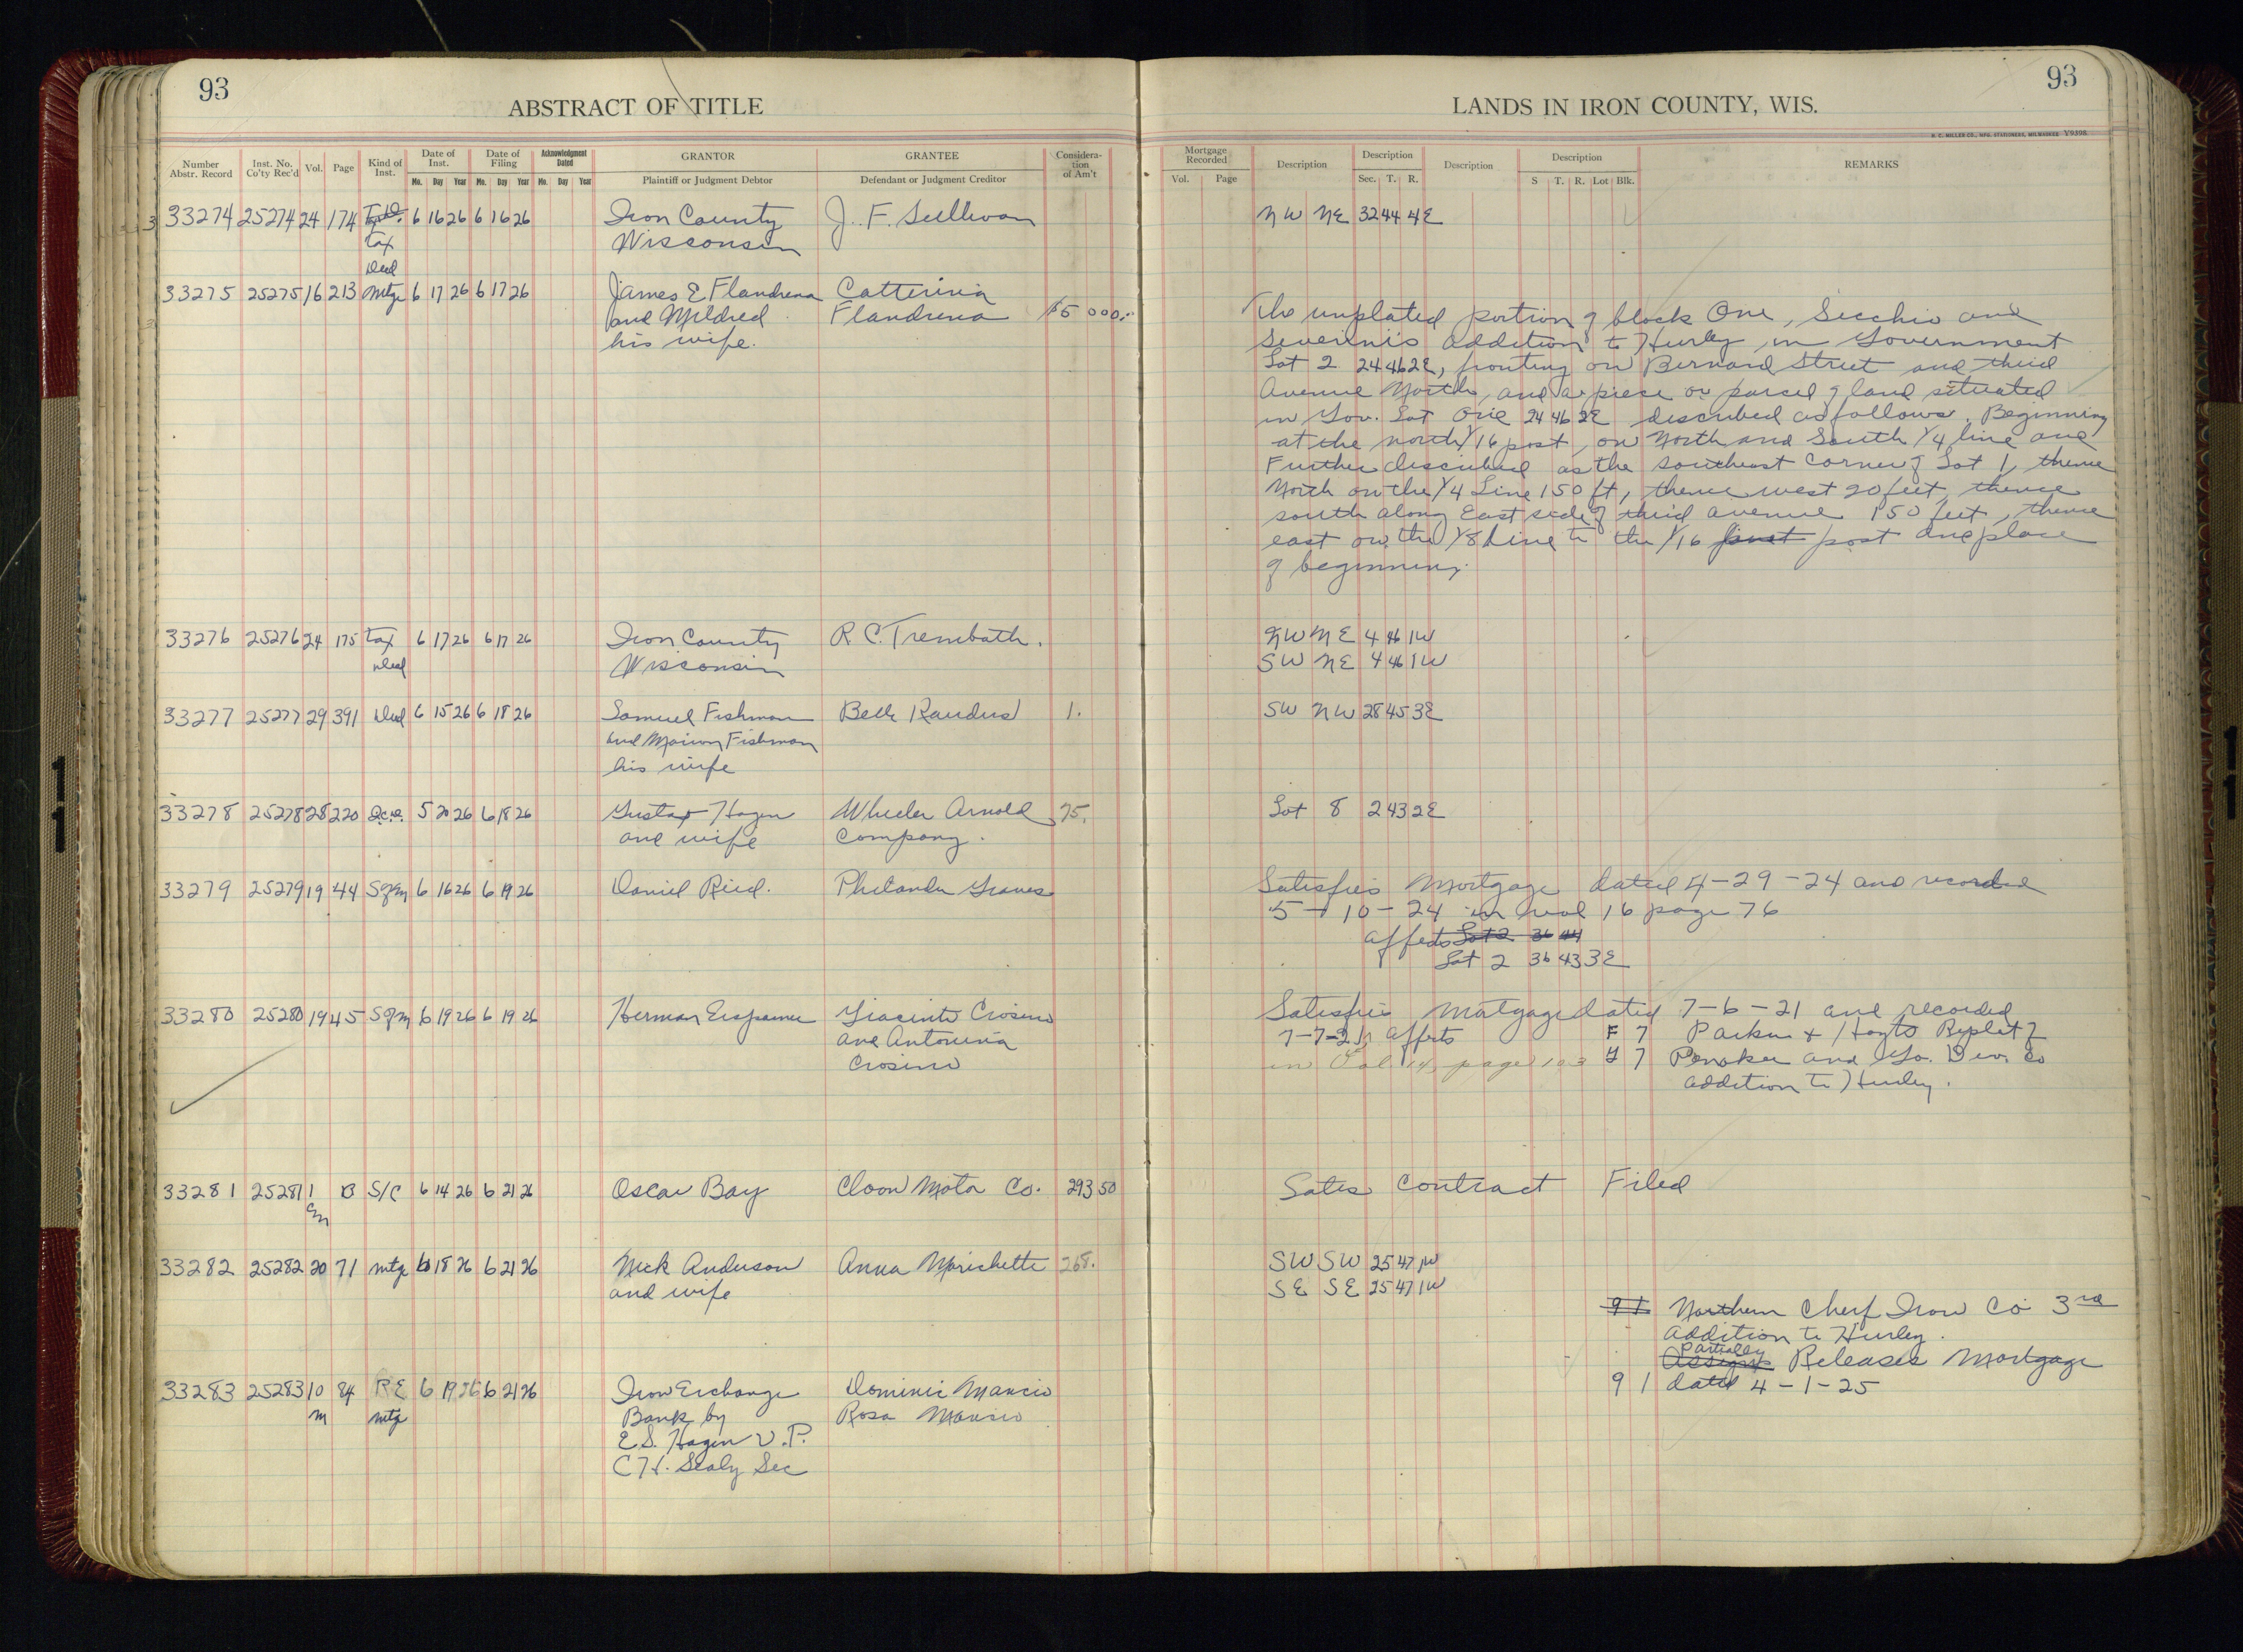 93
ABSTRACT OF TITLE
Number Abstr. Record Inst. No. Co'ty Rec'd Vol. Page Kind of Inst. Date of Inst. Date of Filing Acknowledgment Dated GRANTOR GRANTEE Consideration of Am't
Mo. Day Year Mo. Day Year Mo. Day Year Plaintiff or Judgment Debtor Defendant or Judgment Creditor
33274 25274 24 174 6 16 26 6 16 26 Iron County J. F. Sullivan
Tax Wisconsin
Deed
33275 25275 16 213 Mtge 6 17 26 6 17 26 James E Flandrena Catterina
and Mildred Flandrena $5 000.
his wife.
33276 25276 24 175 Tax 6 17 26 6 17 26 Iron County R. C. Trembath.
Deed Wisconsin
33277 25277 29 391 Deed 6 15 26 6 18 26 Samuel Fishman Belle 1.
and Marion Fishman
his wife
33278 25278 28 220 5 20 26 6 18 26 Gustav Hagen Wheeler Arnold 75.
and wife Company.
33279 25279 19 44 S of M 6 16 26 6 19 26 Daniel Reid. Philander Graves
33280 25280 19 45 S of M 6 19 26 6 19 26 Herman Giacinto Crosino
and Antonina
Crosino
33281 25281 1 B S/C 6 14 26 6 21 26 Oscar Bay Cloon Motor Co. 293 50
33282 25282 20 71 Mtge 6 18 26 6 21 26 Nick Anderson Anna Marichette 268.
and wife
33283 25283 10 84 RE 6 19 26 6 21 26 Iron Exchange Dominic Mancio
M mtge Bank by Rosa Mancio
E.S. Hagen V.P.
C.H. Sealy Sec
93
LANDS IN IRON COUNTY, WIS.
H. C. MILLER CO., MFG. STATIONERS, MILWAUKEE Y9398
Mortgage Recorded Description Description Description Description REMARKS
Vol. Page Sec. T. R. S T. R. Lot Blk.
NW NE 32 44 4E
The unplated portion of block One, Secchio and
Severini's addition to Hurley in Government
Lot 2 24 46 2E, fronting on Bernard Street and third
Avenue North, and a piece or parcel of land situated
in Gov. Lot One 24 46 2E described as follows. Beginning
at the north 1/16 post, on North and South 1/4 line and
Further described as the southeast corner of Lot 1, thence
North on the 1/4 Line 150 ft, thence west 20 feet, thence
south along East side of third avenue 150 feet, thence
east on the 1/8 Line to the 1/16 post and place
of beginning.
NW NE 4 46 1W
SW NE 4 46 1W
SW NW 28 45 3E
Lot 8 2 43 2E
Satisfies Mortgage dated 4-29-24 and recorded
5-10-24 in vol 16 page 76
affects Lot 2 36 44
Lot 2 36 43 3E
Satisfies Mortgage dated 7-6-21 and recorded
7-7-21 affects F 7 Parker & Hoyts Replat of
in Vol. 14, page 103 G 7 Penokee and Go. Dev. Co
addition to Hurley.
Sales Contract Filed
SW SW 25 47 1W
SE SE 25 47 1W
9 1 Northern Chief Iron Co 3rd
addition to Hurley.
Partially
Assigns Releases Mortgage
9 1 dated 4-1-25